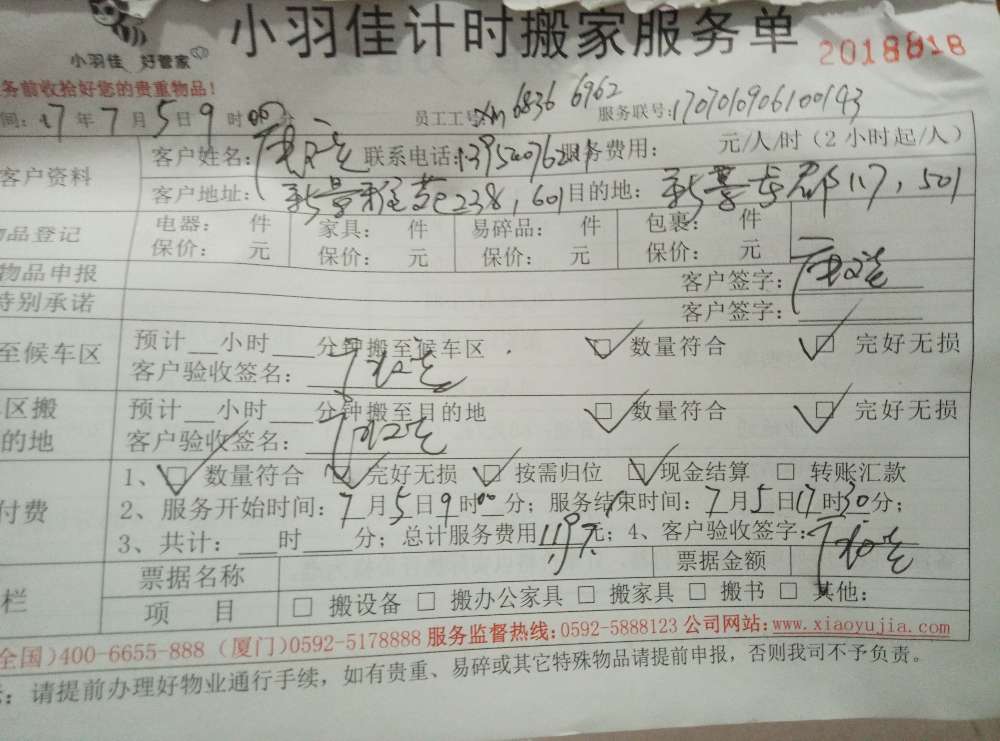 小羽佳计时搬家服务单
小羽佳 好管家
2018818
务前收拾好您的贵重物品!
间: 17年7月5日9时00分 员工工号: xm6836 6962 服务联号: 170701906100143
客户资料 客户姓名: 联系电话: 服务费用: 元/人/时(2小时起/人)
客户地址: 238,601 目的地: 117,501
物品登记 电器: 件 家具: 件 易碎品: 件 包裹: 件
保价: 元 保价: 元 保价: 元 保价: 元
物品申报 客户签字:
特别承诺 客户签字:
至候车区 预计__小时___分钟搬至候车区 ☑ 数量符合 ☑ 完好无损
客户验收签名:
区搬 预计__小时___分钟搬至目的地 ☑ 数量符合 ☑ 完好无损
的地 客户验收签名:
1、☑ 数量符合 ☑ 完好无损 ☑ 按需归位 ☑ 现金结算 □ 转账汇款
付费 2、服务开始时间: 7月5日9时00分; 服务结束时间: 7月5日17时30分;
3、共计: ___时___分; 总计服务费用 元; 4、客户验收签字:
票据名称 票据金额
栏 项 目 □ 搬设备 □ 搬办公家具 □ 搬家具 □ 搬书 □ 其他:
全国)400-6655-888 (厦门)0592-5178888 服务监督热线:0592-5888123 公司网站:www.xiaoyujia.com
: 请提前办理好物业通行手续,如有贵重、易碎或其它特殊物品请提前申报,否则我司不予负责。